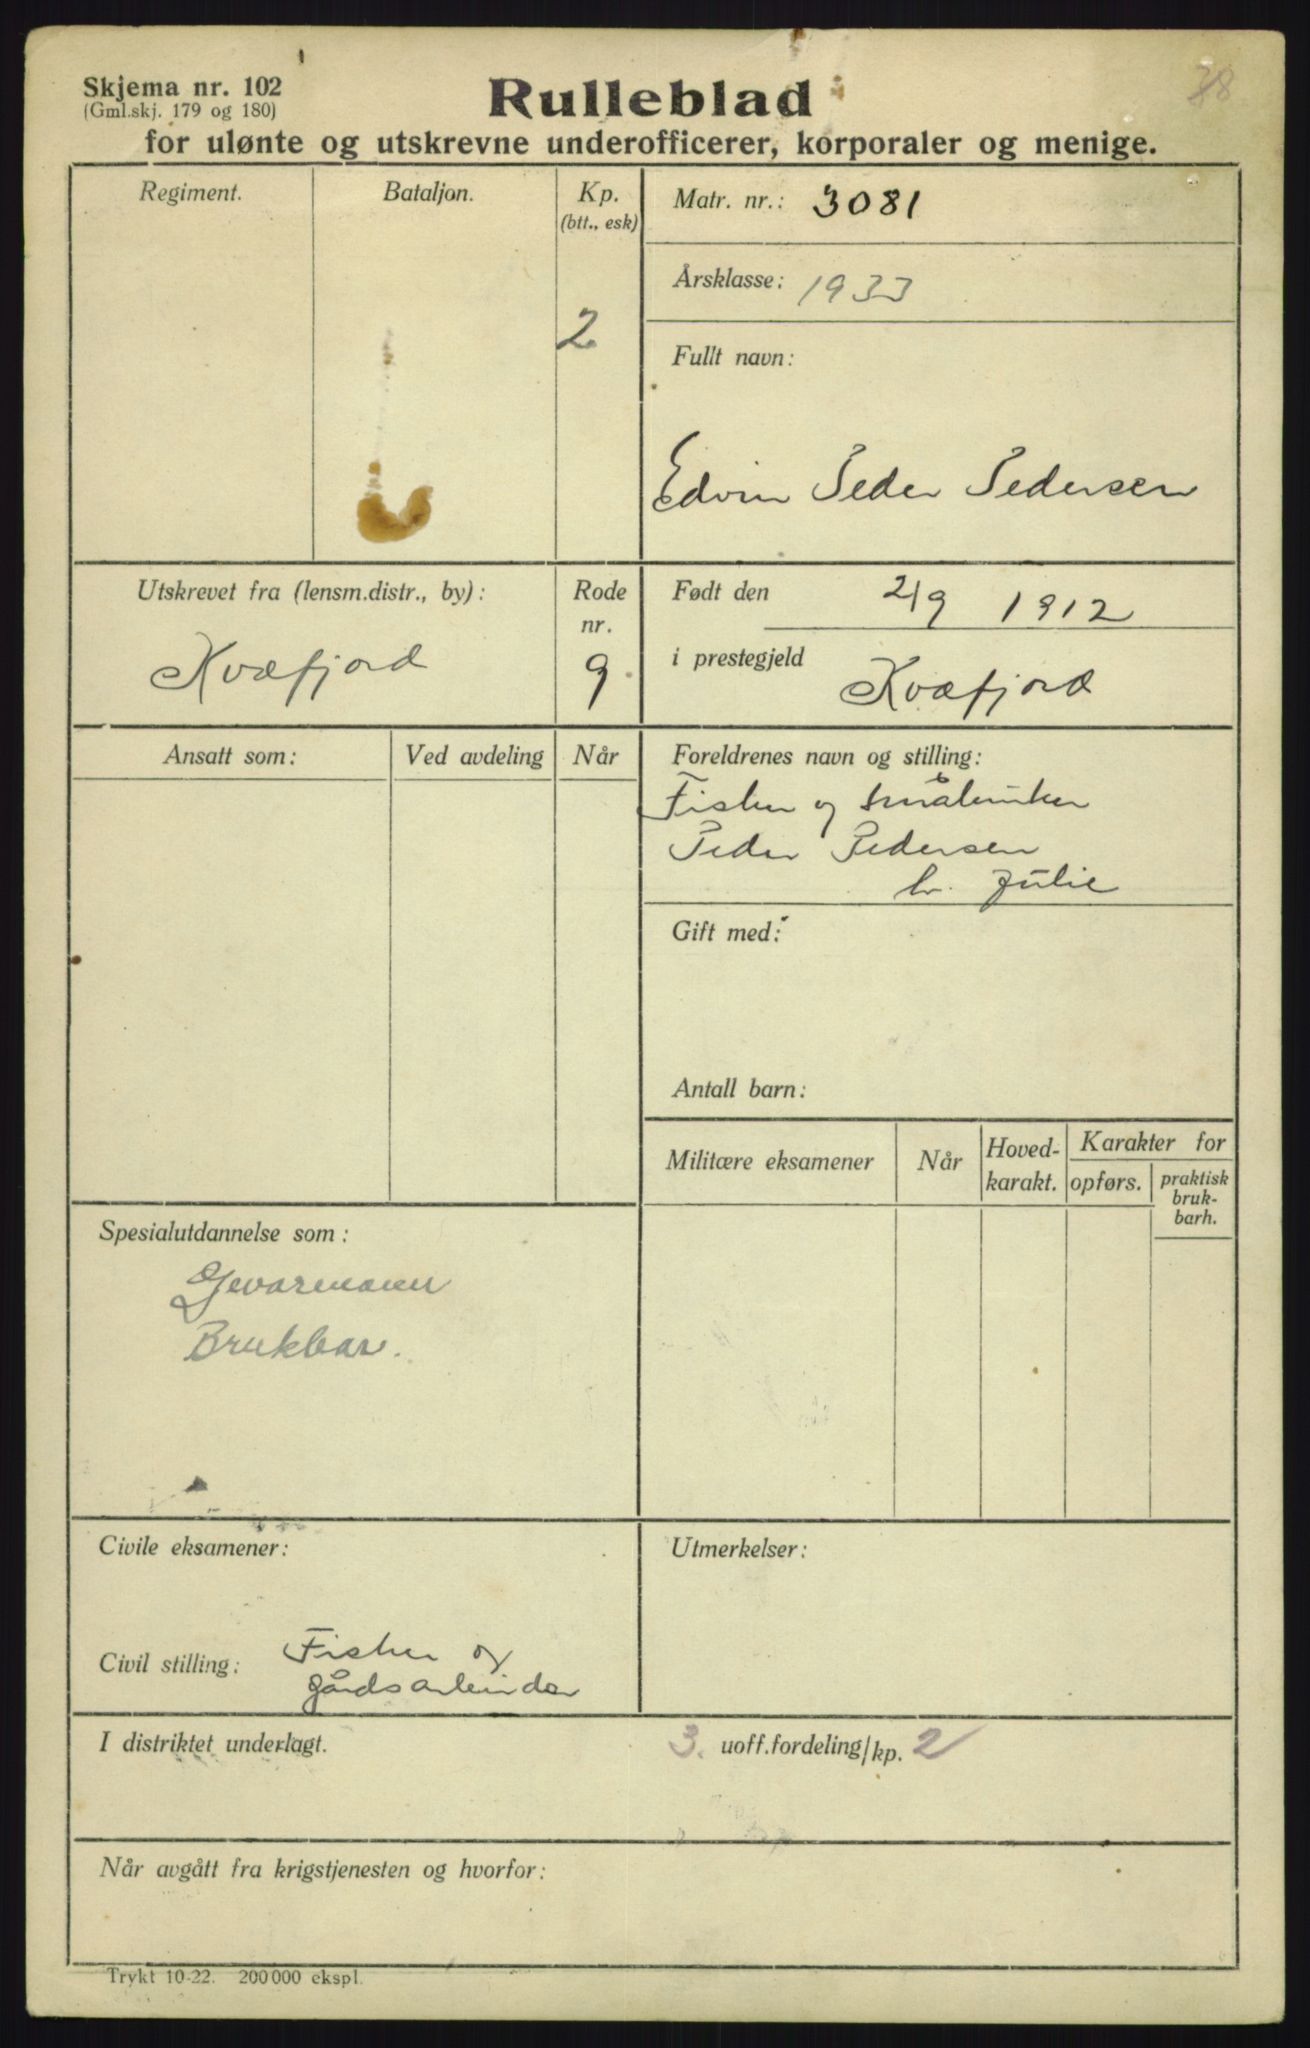 Skjema nr. 102
(Gml.skj. 179 og 180)
38
Rulleblad
for ulønte og utskrevne underofficerer, korporaler og menige.
Regiment.
Bataljon.
Kp.
(btt., esk)
2
Matr. nr.: 3081
Årsklasse: 1933
Fullt navn:
Edvin Peder Pedersen
Utskrevet fra (lensm.distr., by):
Kvæfjord
Rode
nr.
9
Født den 2/9 1912
i prestegjeld Kvæfjord
Ansatt som:
Ved avdeling
Når
Foreldrenes navn og stilling:
Fisker og småbruker
Peder Pedersen
h. Julie
Gift med:
Antall barn:
Militære eksamener
Når
Hoved-
karakt.
Karakter for
opførs.
praktisk
bruk-
barh.
Spesialutdannelse som:
Geværmann
Brukbar.
Civile eksamener:
Civil stilling: Fisker og
gårdsarbeider
Utmerkelser:
I distriktet underlagt.
3. uoff.fordeling/kp. 2
Når avgått fra krigstjenesten og hvorfor:
Trykt 10-22. 200 000 ekspl.